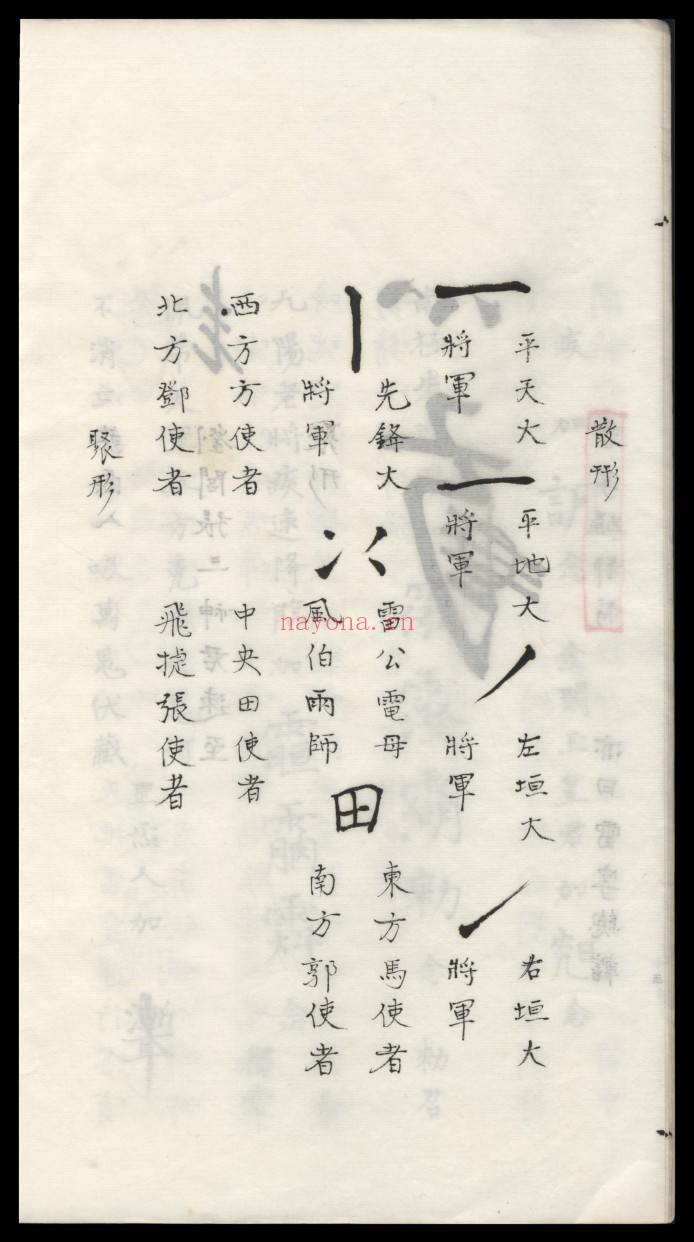 散形
平天大 平地大 左垣大 右垣大
一 將軍 一 將軍 丿 將軍 丿 將軍
先鋒大 雷公電母 東方馬使者
丨 將軍 風伯雨師 田 南方郭使者
西方方使者 中央田使者
北方鄧使者 飛捷張使者
聚形
nayona.cn